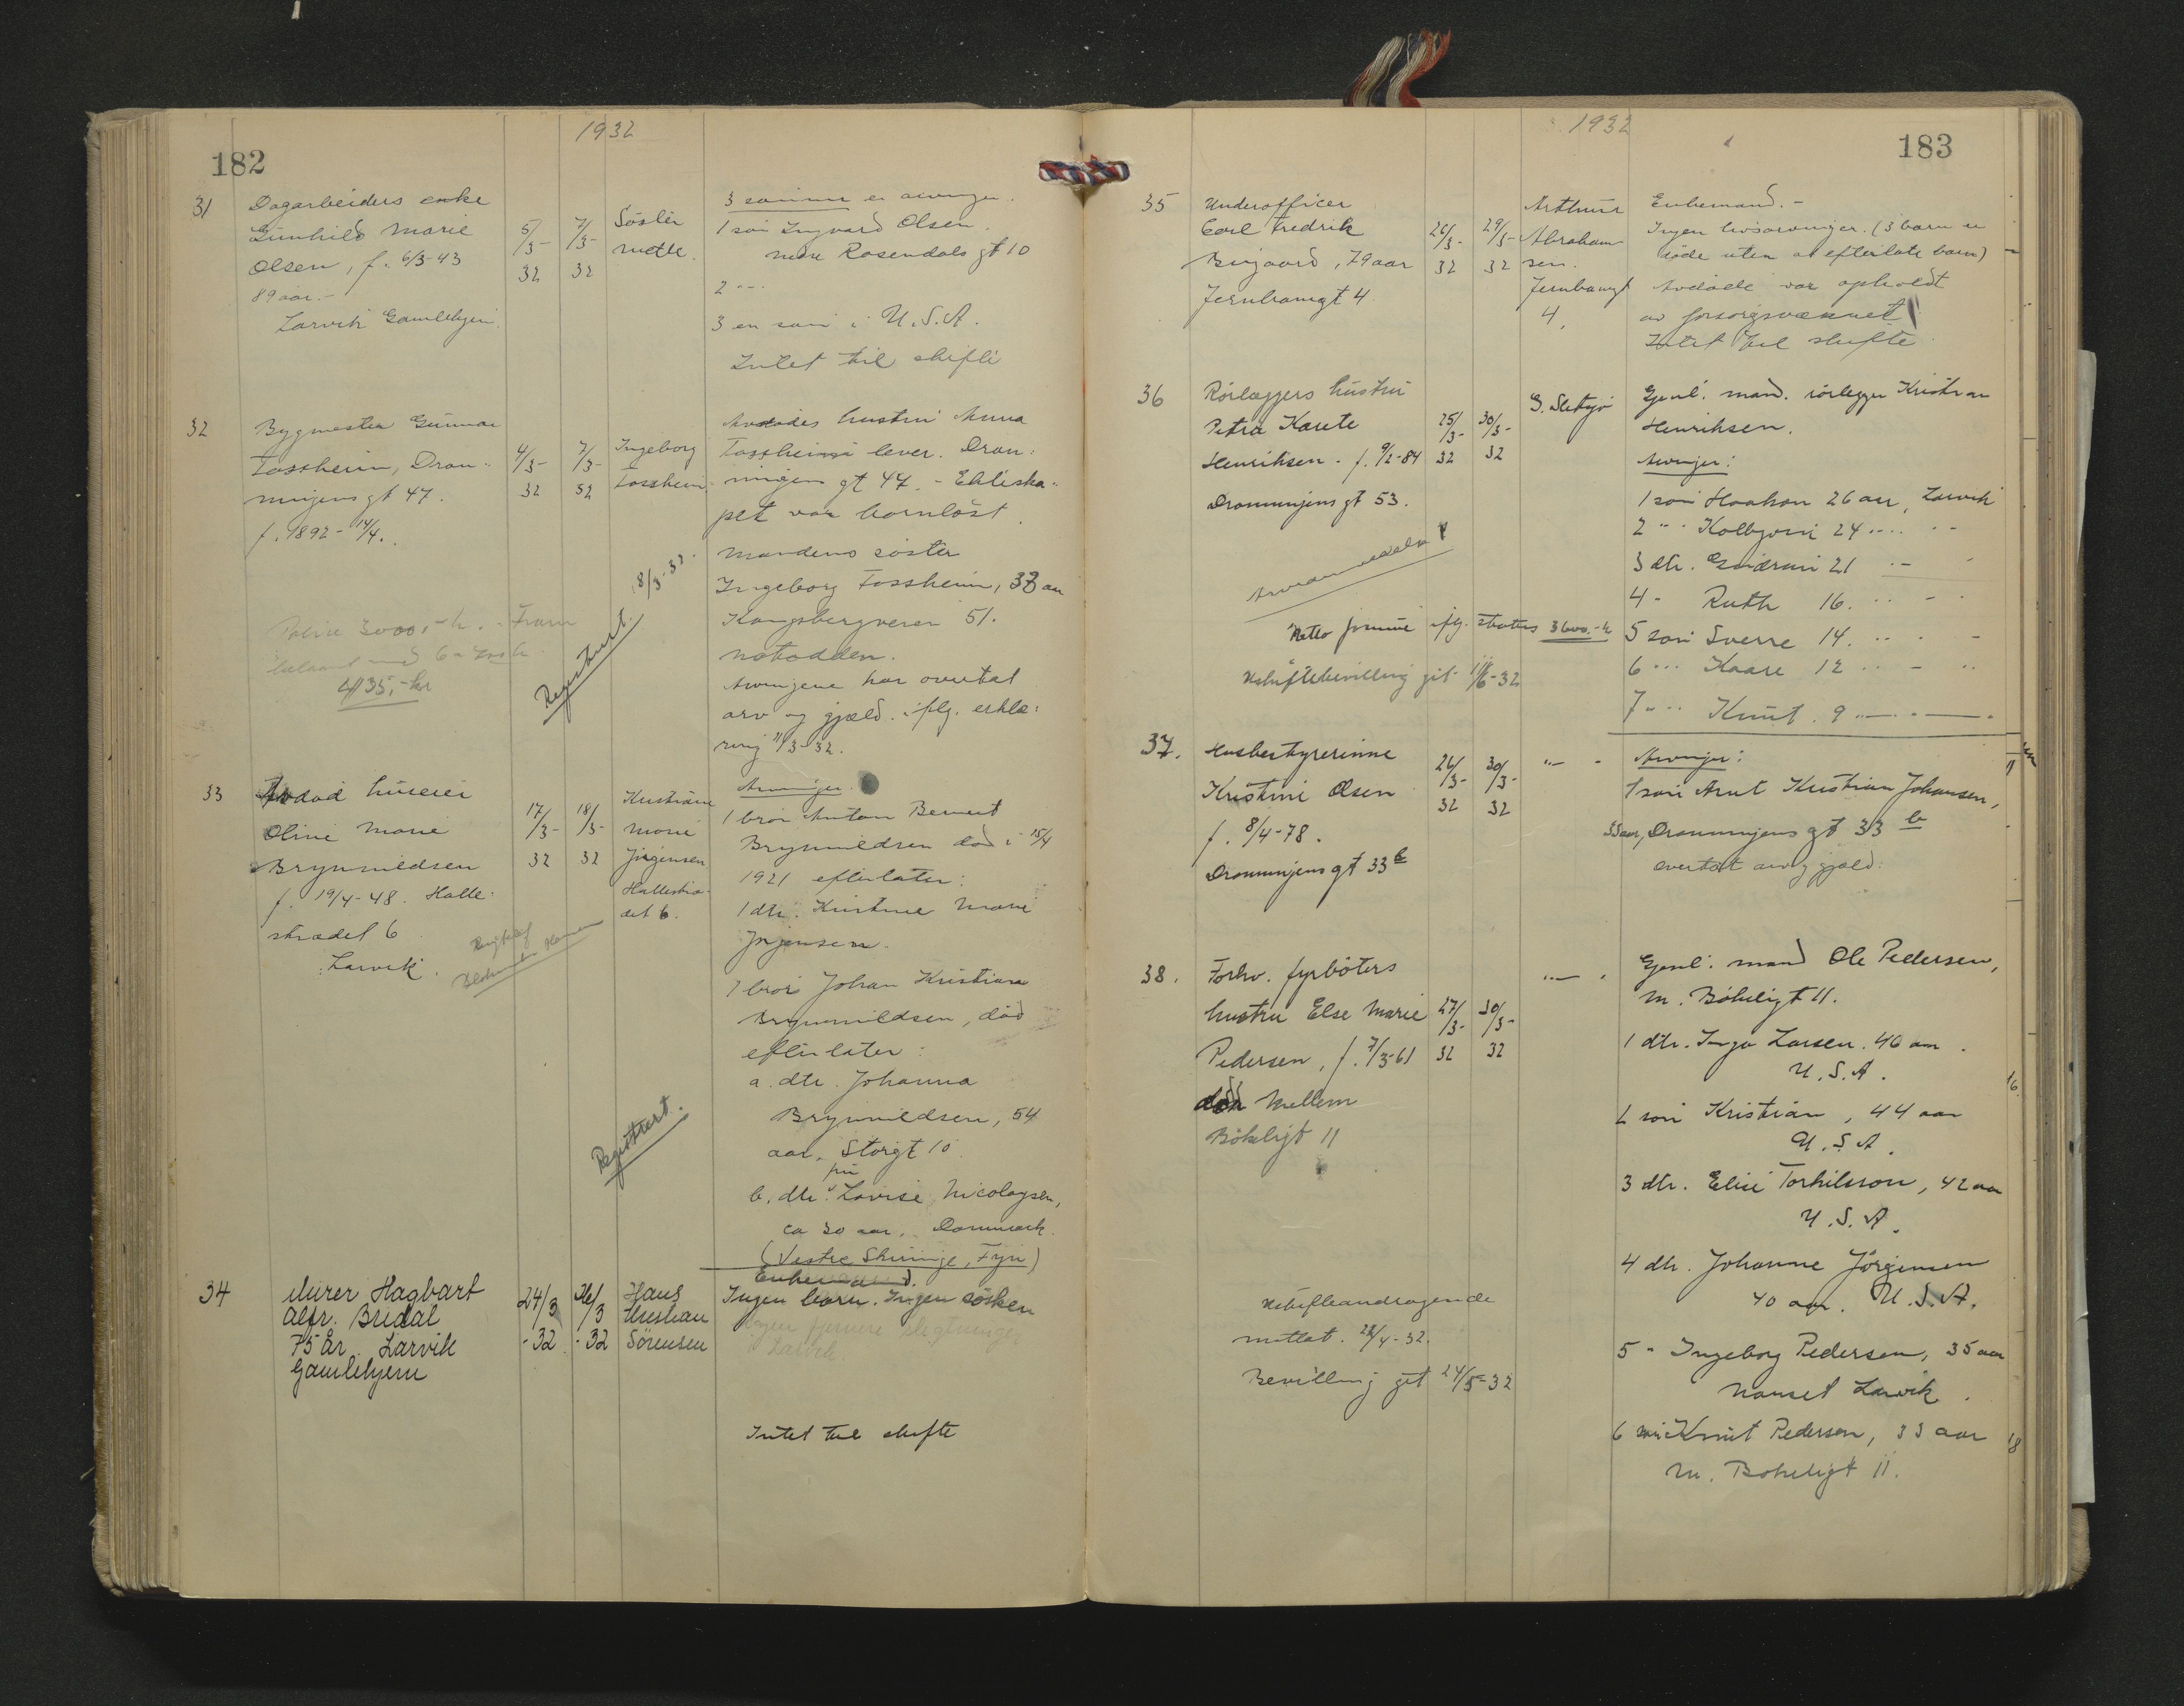 1932
182
31
Dagarbeiders enke
Gunhild Marie
Olsen, f. 6/3-43
89 aar.-
Larvik Gamlehjem.
5/3-
32
7/3-
32
Søster
3 sønner er arvinger.
1 søn Ingvard Olsen.
nedre Rosendals gt 10
2 "-
3 en søn i U.S.A.
Intet til skifte
32
Bygmester Gunnar
Fossheim, Dron-
ningens gt 47.
f. 1892-14/4.
4/3-
32
7/3-
32
Ingeborg
Fossheim
Avdødes hustru Anna
Fossheim lever. Dron-
ningens gt 47. - Ekteska-
pet var barnløst.
Mandens søster
Ingeborg Fossheim, 38 aar
Kongsbergveien 51.
Notodden.
Arvingene har overtat
arv og gjæld. iflg. erklæ-
ring 11/3-32.
Registrert. 18/3-32.
Police 3000,- kr. - Fram
33
Avdød huseier
Oline Marie
Brynnildsen
f. 19/4-48. Halle-
strædet 6
Larvik.
17/3-
32
18/3-
32
Kristiane
Marie
Jørgensen
Hallestræ-
det 6.
Arvinger.
1 bror Anton Bernert
Brynnildsen død i 15/4
1921 efterlater:
1 dtr. Kristine Marie
Jørgensen.
1 bror Johan Kristian
Brynnildsen, død
efterlater:
a. dtr. Johanna
Brynnildsen, 54
aar, Storgt 10
b. dtr. Lovise Nicolaysen,
ca 30 aar, Danmark.
(Vestre Skjerninge, Fyn)
Registrert.
34
Murer Hagbart
Alfr. Bredal
75 år Larvik
Gamlehjem
24/3
-32
26/3
-32
Hans
Kristian
Sørensen
Enkemand.
Ingen barn. Ingen søsken
Ingen fjernere slegtninger
i Larvik
Intet til skifte
1932
183
35
Underofficer
Carl Fredrik
Birgaard, 79 aar
Jernbanegt 4.
26/3-
32
29/3-
32
Arthur
Abraham-
sen.
Jernbanegt
4.
Enkemand.-
Ingen livsarvinger. (3 barn er
døde uten at efterlate barn)
Avdøde var opholdt
av forsorgsvæsenet
Intet til skifte.
36
Rørlæggers hustru
Petra Karete
Henriksen - f. 9/2-84
Dronningens gt 53.
25/3-
32
30/3-
32
S. Sletsjø
Gjenl. mand. rørlegger Kristian
Henriksen.
Arvinger:
1 søn Haakon 26 aar, Larvik
2 "- Kolbjørn 24 "-
3 dtr. Gudrun 21 "-
4 - Ruth 16. "-
5 søn Sverre 14. "-
6 "- Kaare 12 "-
7 "- Knut. 9 "-
Netto formue iflg. status 3600.- kr
Uskiftebevilling git 11/6-32
37.
Husbestyrerinne
Kristine Olsen
f. 8/4-78.
Dronningens gt 33 b
26/3-
32
30/3-
32
"-
Arvinger:
1 søn Arnt Kristian Johansen,
35 aar, Dronningens gt 33 b
overtat arv og gjæld.
38.
Forhv. fyrbøters
hustru Else Marie
Pedersen, f. 7/3-61
Mellem
Bøkeligt 11
27/3-
32
30/3-
32
"-
Gjenl. mand Ole Pedersen,
M. Bøkeligt 11.
1 dtr. Inga Larsen. 46 aar.
U.S.A.
2 søn Kristian, 44 aar
U.S.A.
3 dtr. Elise Torkilsson, 42 aar
U.S.A.
4 dtr. Johanne Jørgensen
40 aar. U.S.A.
5 " Ingeborg Pedersen, 35 aar
Nanset Larvik.
6 søn Knut Pedersen, 33 aar
M. Bøkeligt 11.
Uskifteandragende
mottat. 22/4-32.
Bevilling git 24/5-32